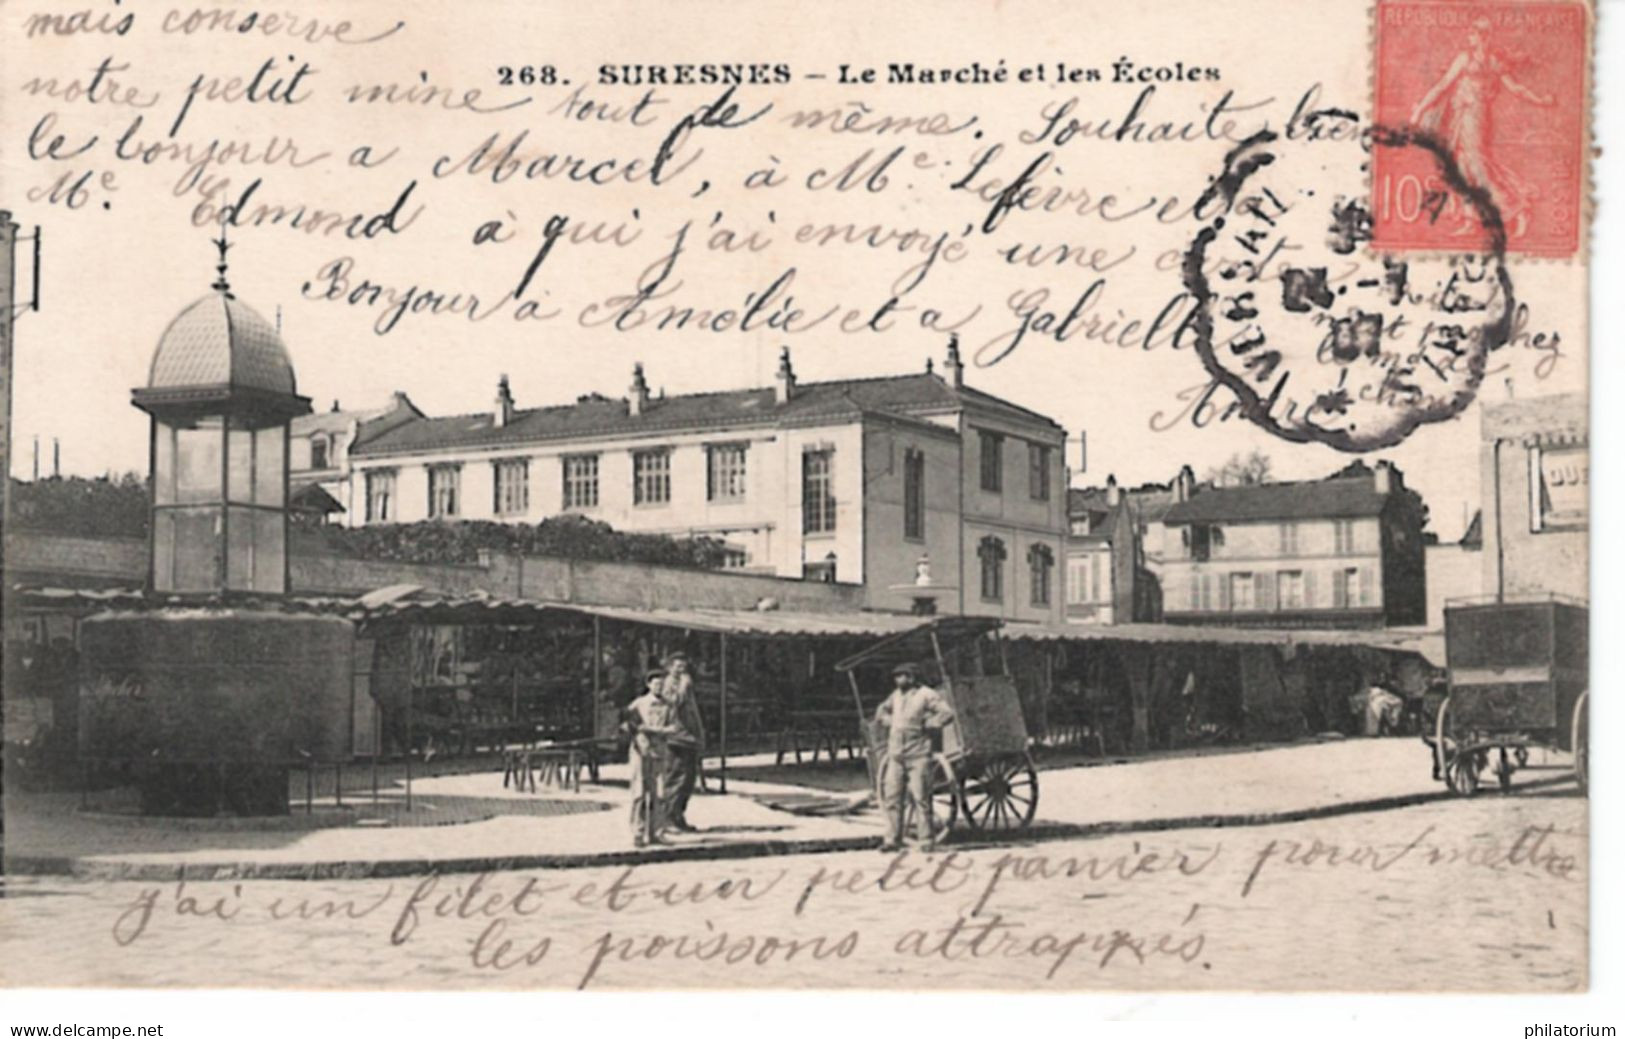 mais conserve
268. SURESNES – Le Marché et les Écoles
notre petit mine tout de même. Souhaite bien
le bonjour a Marcel, à Me Lefèvre et a
Me. Edmond à qui j'ai envoyé une carte
Bonjour à Amélie et a Gabrielle
André
REPUBLIQUE FRANÇAISE
10
POSTES
VERSAI
j'ai un filet et un petit panier pour mettre
les poissons attrappés.
www.delcampe.net
philatorium